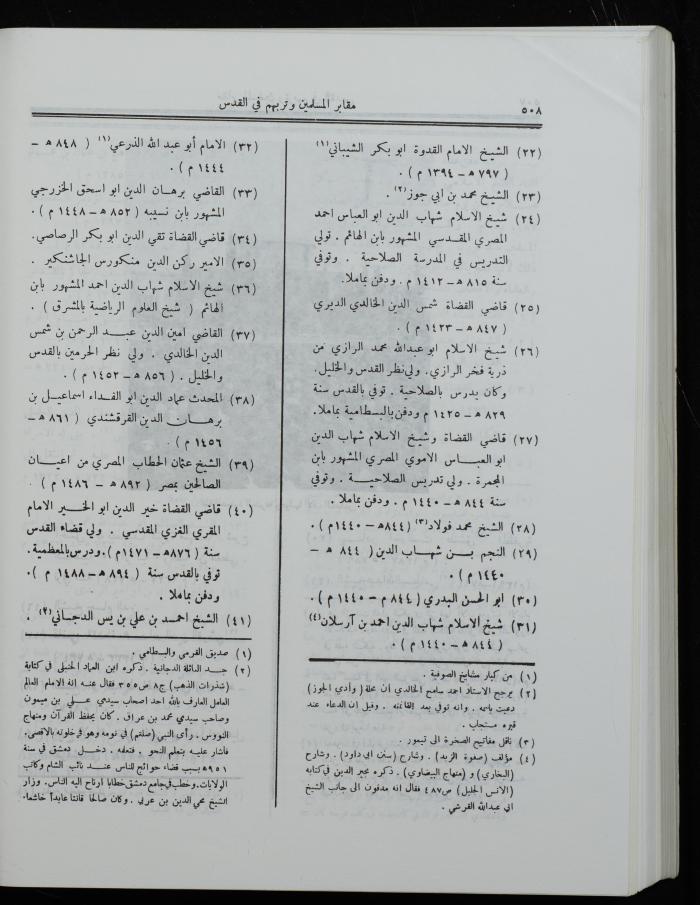 ٥٠٨
مقابر المسلمين وتربهم في القدس
(٢٢) الشيخ الامام القدوة ابو بكر الشيباني(١)
( ٧٩٧ ھ – ١٣٩٤ م ) .
(٢٣) الشيخ محمد بن ابي جوز(٢) .
(٢٤) شيخ الاسلام شهاب الدين ابو العباس احمد
المصري المقدسي المشهور بابن الهائم . تولي
التدريس في المدرسة الصلاحية . وتوفي
سنة ٨١٥ ھ – ١٤١٢ م . ودفن بماملا.
(٢٥) قاضي القضاة شمس الدين الخالدي الديري
( ٨٤٧ ھ – ١٤٢٣ م ) .
(٢٦) شيخ الاسلام ابو عبدالله محمد الرازي من
ذرية فخر الرازي. ولي نظر القدس والخليل.
وكان يدرس بالصلاحية . توفي بالقدس سنة
٨٢٩ ھ – ١٤٢٥ م ودفن بالبسطامية بماملا.
(٢٧) قاضي القضاة وشيخ الاسلام شهاب الدين
ابو العباس الاموي المصري المشهور بابن
المحمرة . ولي تدريس الصلاحية . وتوفي
سنة ٨٤٤ ھ – ١٤٤٠ م . ودفن بماملا .
(٢٨) الشيخ محمد فولاد(٣) (٨٤٤ھ – ١٤٤٠م ) .
(٢٩) النجم بن شهاب الدين ( ٨٤٤ ھ –
١٤٤٠ م ) .
(٣٠) ابو الحسن البدري ( ٨٤٤ م – ١٤٤٠ م ) .
(٣١) شيخ الاسلام شهاب الدين احمد بن آرسلان(٤)
( ٨٤٤ ھ – ١٤٤٠ م ) .
(١) من كبار مشايخ الصوفية .
(٢) يرجح الاستاذ احمد سامح الخالدي أن محلة ( وأدي الجوز )
دعيت باسمه . وانه توفي بعد الثمانمئة . وقيل ان الدعاء عند
قبره مستجاب .
(٣) ناقل مفاتيح الصخرة الى تيمور .
(٤) مؤلف (صفوة الزبد) . وشارح (سنن ابي داود) . وشارح
(البخاري) و (منهاج البيضاوي) . ذكره مجير الدين في كتابه
(الانس الجليل) ص٤٨٧ فقال انه مدفون الى جانب الشيخ
ابي عبدالله القرشي .
(٣٢) الامام أبو عبد الله الذرعي(١) ( ٨٤٨ ھ –
١٤٤٤ م ) .
(٣٣) القاضي برهان الدين ابو اسحق الخزرجي
المشهور بابن نسيبه ( ٨٥٢ ھ – ١٤٤٨ م ) .
(٣٤) قاضي القضاة تقي الدين ابو بكر الرصاصي.
(٣٥) الامير ركن الدين منكورس الجاشنكير .
(٣٦) شيخ الاسلام شهاب الدين احمد المشهور بابن
الهائم ( شيخ العلوم الرياضية بالمشرق ) .
(٣٧) القاضي امين الدين عبد الرحمن بن شمس
الدين الخالدي . ولي نظر الحرمين بالقدس
والخليل . ( ٨٥٦ ھ – ١٤٥٢ م ) .
(٣٨) المحدث عماد الدين ابو الفداء اسماعيل بن
برهان الدين القرقشندي ( ٨٦١ ھ –
١٤٥٦ م ) .
(٣٩) الشيخ عثمان الحطاب المصري من اعيان
الصالحين بمصر ( ٨٩٢ ھ – ١٤٨٦ م ) .
(٤٠) قاضي القضاة خير الدين ابو الخير الامام
المقري الغزي المقدسي . ولي قضاء القدس
سنة ( ٨٧٦ھ – ١٤٧١م ). ودرس بالمعظمية.
توفي بالقدس سنة ( ٨٩٤ ھ – ١٤٨٨ م ).
ودفن بماملا .
(٤١) الشيخ احمد بن علي بن يس الدجاني(٢) .
(١) صديق القرمي والبسطامي .
(٢) جد العائلة الدجانية . ذكره ابن العماد الحنبلي في كتابة
(شذرات الذهب) ج٨ ص٣٥٥ فقال عنه إنه الامام العالم
العامل العارف بالله احد اصحاب سيدي علي بن ميمون
وصاحب سيدي محمد بن عراق . كان يحفظ القرآن ومنهاج
النووس . رأى النبي (صلعم) في نومه وهو في خلوته بالاقصى.
فأشار عليه بتعلم النحو . فتعلمه . دخل دمشق في سنة
٩٥١ھ بسبب قضاء حوائج للناس عند نائب الشام وكاتب
الولايات. وخطب في جامع دمشق خطابا ارتاح اليه الناس. وزار
الشيخ محي الدين بن عربي . وكان صالحا قانتا عابداً خاشعاً،